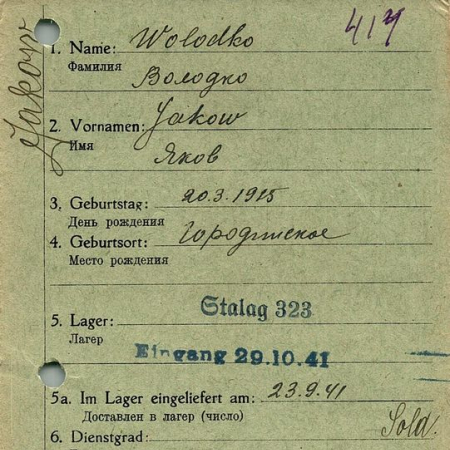 417
Jakow
1. Name: Wolodko
Фамилия
Володко
2. Vornamen: Jakow
Имя
Яков
3. Geburtstag: 20.3.1915
День рождения
4. Geburtsort: Городинское
Место рождения
Stalag 323
5. Lager:
Лагер
Eingang 29.10.41
5a. Im Lager eingeliefert am: 23.9.41
Доставлен в лагер (число)
Sold.
6. Dienstgrad: